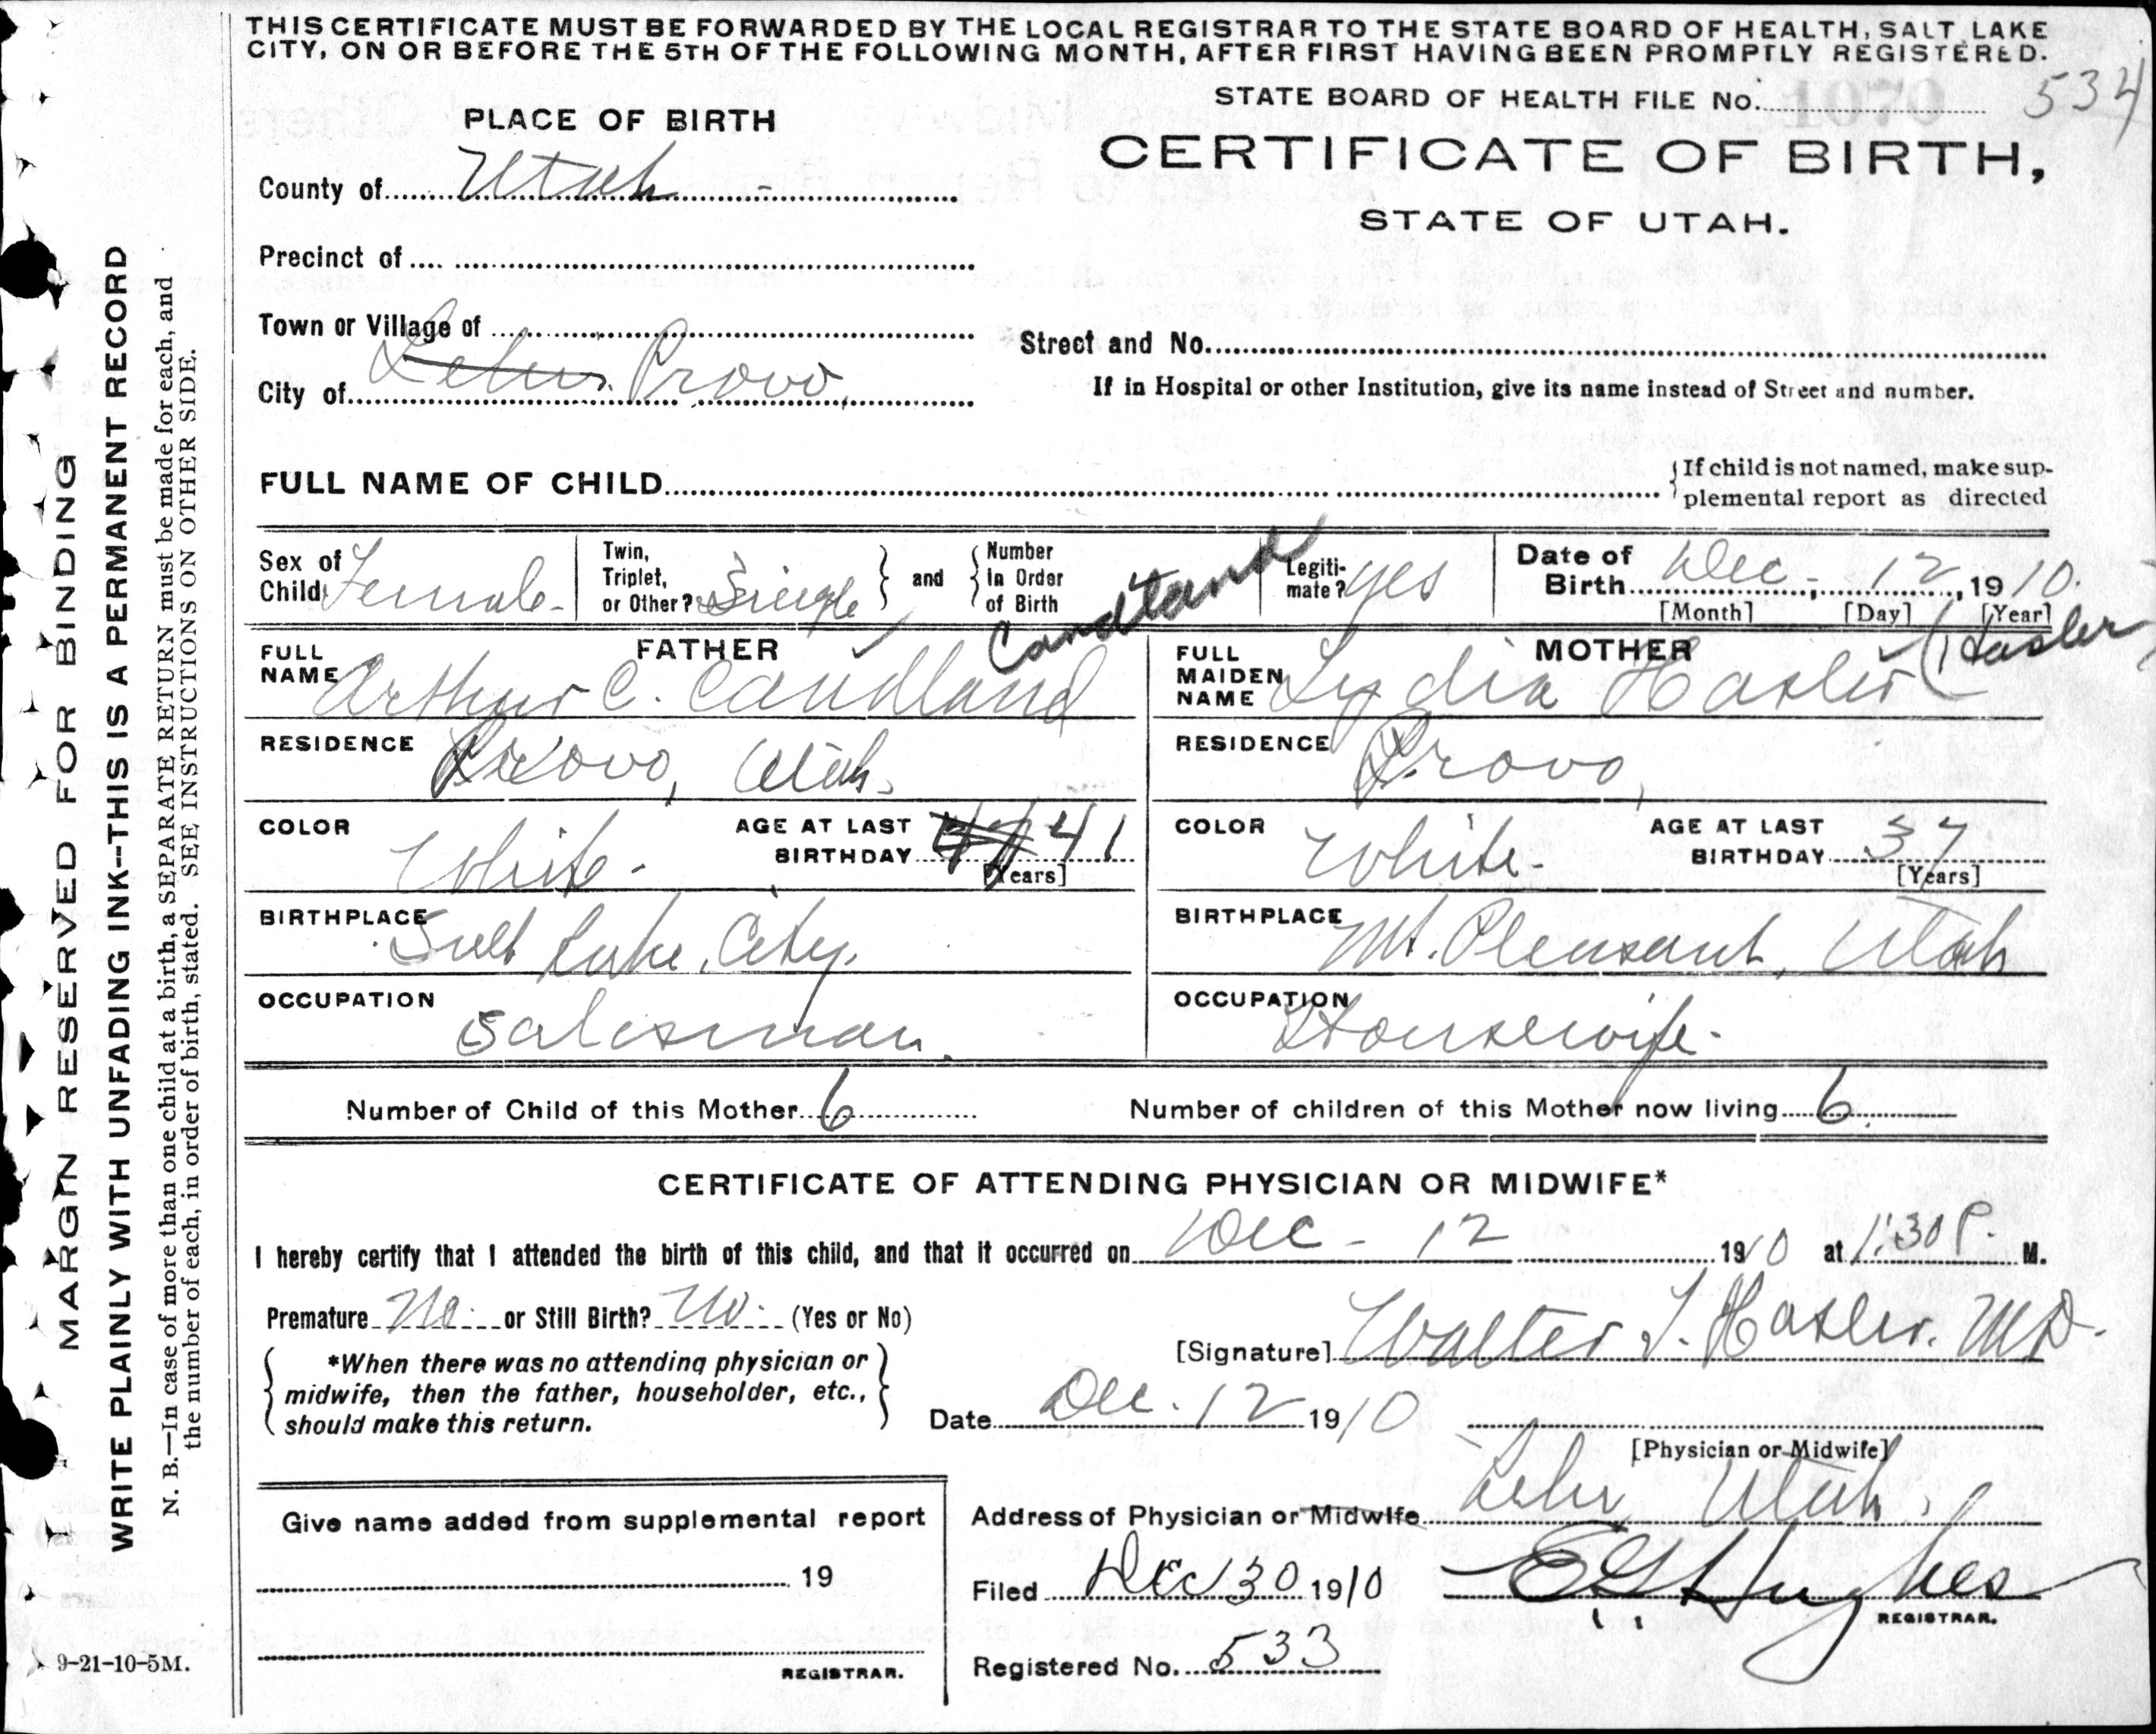 THIS CERTIFICATE MUST BE FORWARDED BY THE LOCAL REGISTRAR TO THE STATE BOARD OF HEALTH, SALT LAKE
CITY, ON OR BEFORE THE 5TH OF THE FOLLOWING MONTH, AFTER FIRST HAVING BEEN PROMPTLY REGISTERED.
STATE BOARD OF HEALTH FILE No. 534
PLACE OF BIRTH
CERTIFICATE OF BIRTH,
STATE OF UTAH.
County of Utah -
Precinct of
Town or Village of
Street and No.
City of Lehi Provo,
If in Hospital or other Institution, give its name instead of Street and number.
FULL NAME OF CHILD
If child is not named, make sup-
plemental report as directed
Sex of Child Female -
Twin, Triplet, or Other? Single and Number in Order of Birth
Legiti-mate? yes
Date of Birth Dec - 12, 1910.
[Month] [Day] [Year]
Candland
(Hasler
FATHER
MOTHER
FULL NAME Arthur C. Candland
FULL MAIDEN NAME Lydia Hasler
RESIDENCE Provo, Utah.
RESIDENCE Provo,
COLOR White -
AGE AT LAST BIRTHDAY 41
[Years]
COLOR White -
AGE AT LAST BIRTHDAY 37
[Years]
BIRTHPLACE Salt Lake City.
BIRTHPLACE Mt. Pleasant, Utah
OCCUPATION Salesman.
OCCUPATION Housewife -
Number of Child of this Mother 6
Number of children of this Mother now living 6
CERTIFICATE OF ATTENDING PHYSICIAN OR MIDWIFE*
I hereby certify that I attended the birth of this child, and that it occurred on Dec - 12 1910 at 1:30 P. M.
Premature No or Still Birth? No (Yes or No)
*When there was no attending physician or
midwife, then the father, householder, etc.,
should make this return.
[Signature] Walter T. Hasler. M.D.
Date Dec. 12 1910
[Physician or Midwife]
Give name added from supplemental report
19
REGISTRAR.
Address of Physician or Midwife Lehi Utah.
Filed Dec 30 1910 E G Hughes
REGISTRAR.
Registered No. 533
MARGIN RESERVED FOR BINDING
WRITE PLAINLY WITH UNFADING INK--THIS IS A PERMANENT RECORD
N. B.—In case of more than one child at a birth, a SEPARATE RETURN must be made for each, and
the number of each, in order of birth, stated. SEE INSTRUCTIONS ON OTHER SIDE.
9-21-10-5M.